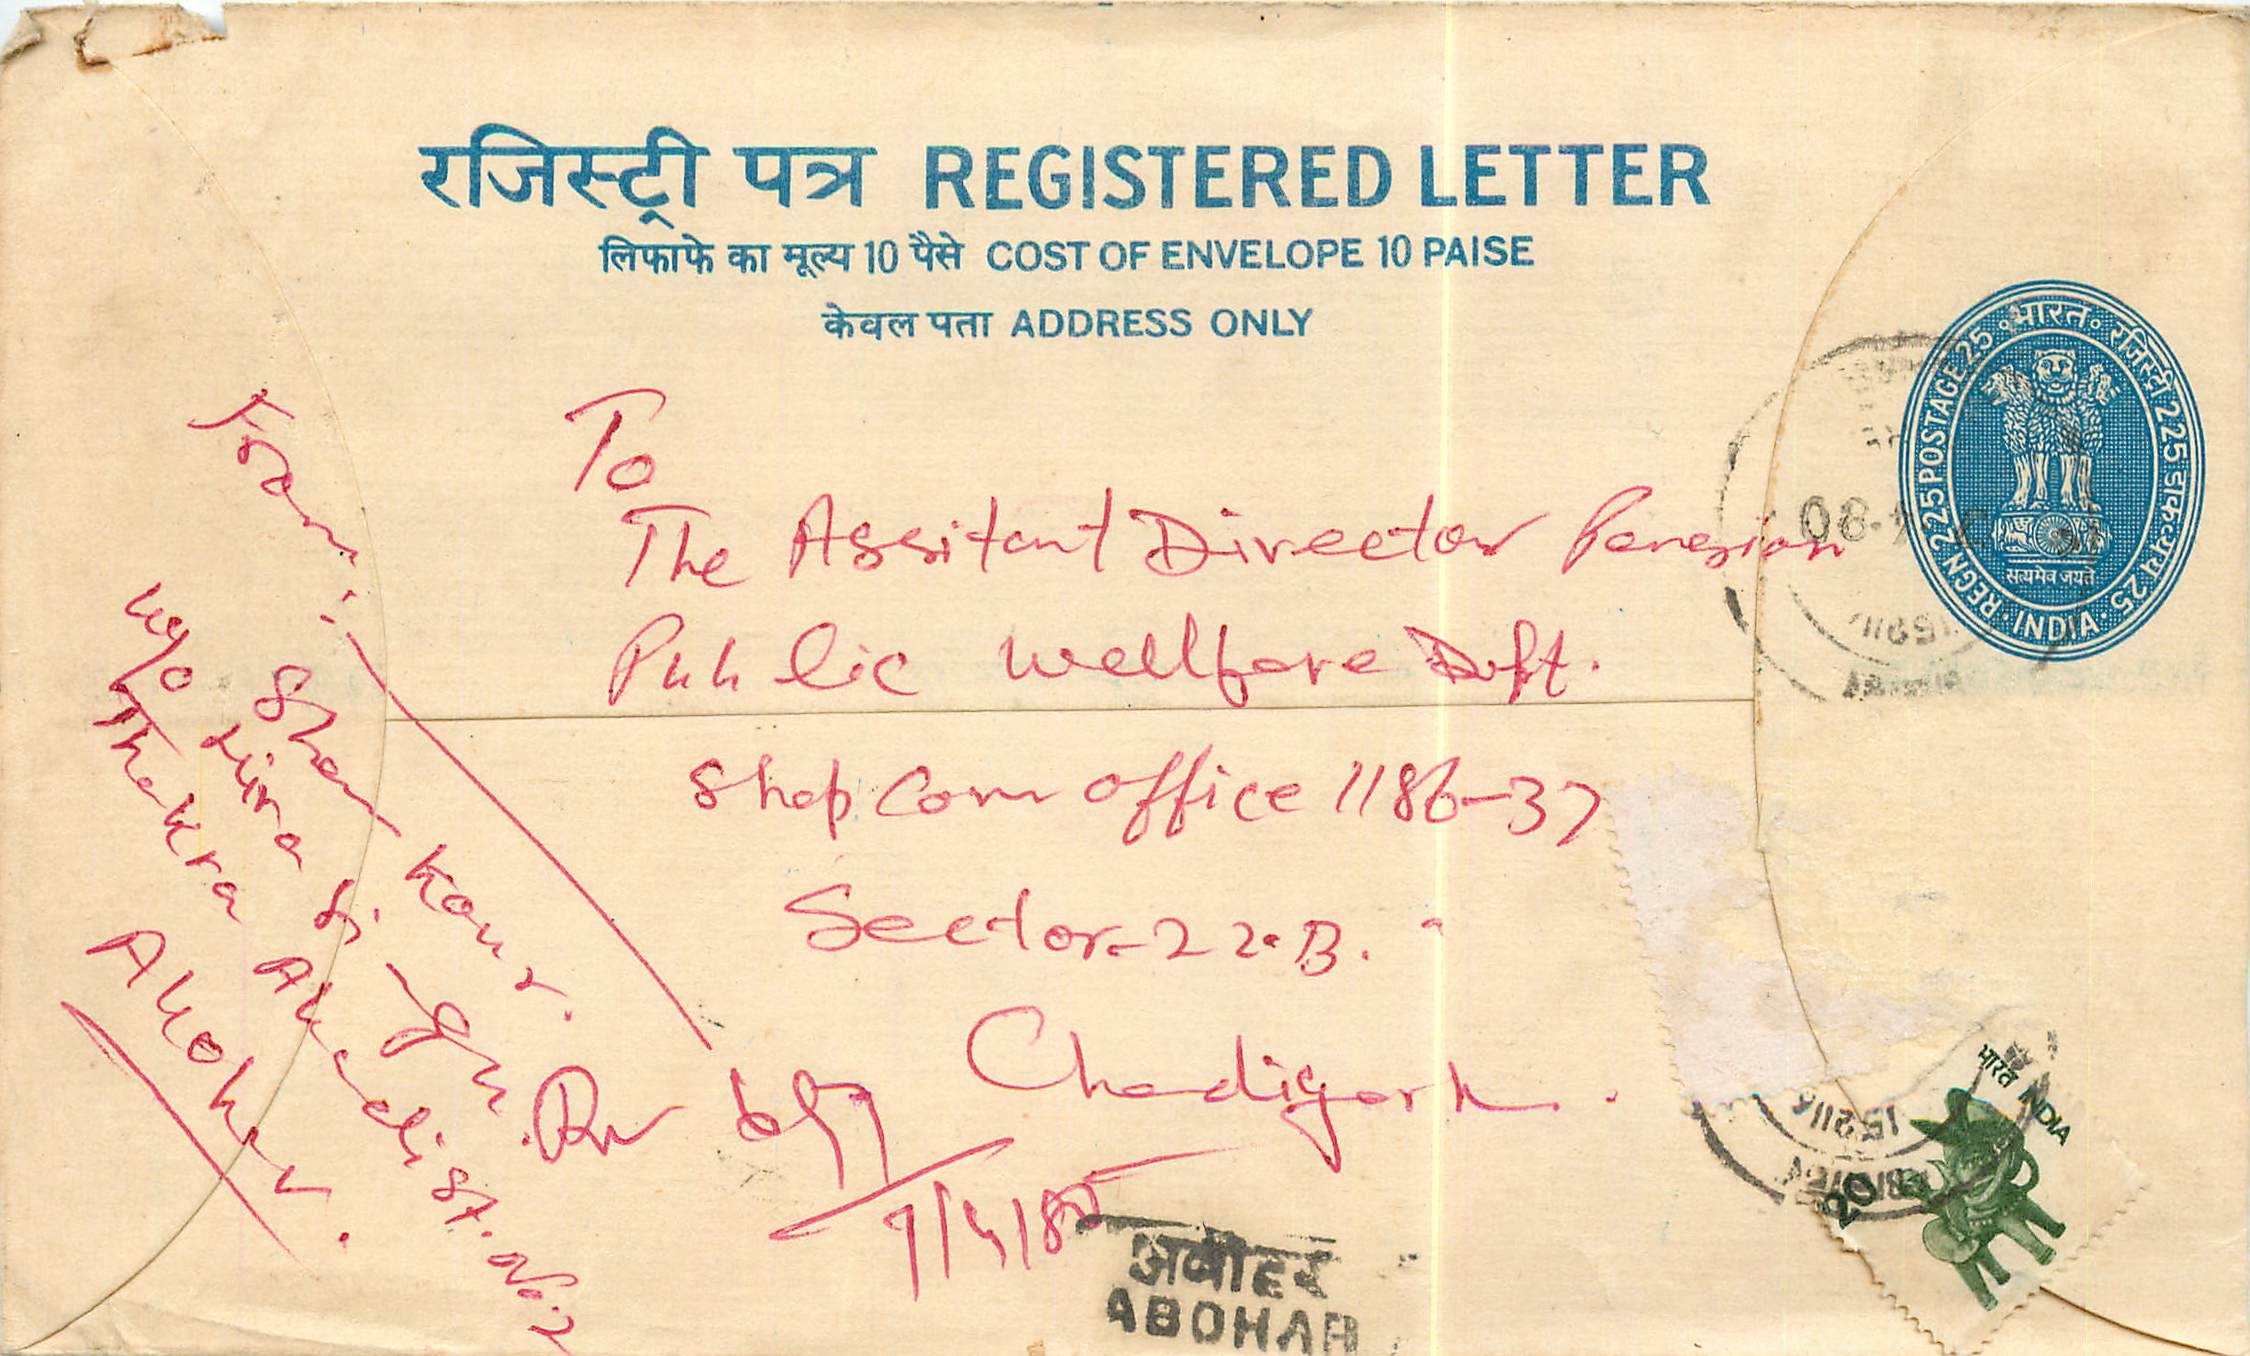 रजिस्ट्री पत्र REGISTERED LETTER
लिफाफे का मूल्य 10 पैसे COST OF ENVELOPE 10 PAISE
केवल पता ADDRESS ONLY
भारत रजिस्ट्री 225 डाकमूल्य 25
INDIA REGN 225 POSTAGE 25
सत्यमेव जयते
To
The Assitant Director Pension
Public wellfare Deft.
Shop Com office 1186-37
Sector-22-B.
Chadigarh.
From:
Sher Kour.
Singh.
Thakra Abadi St. No. 2
Abohar.
7/4/85
अबोहर
ABOHAR
भारत INDIA
20
152116